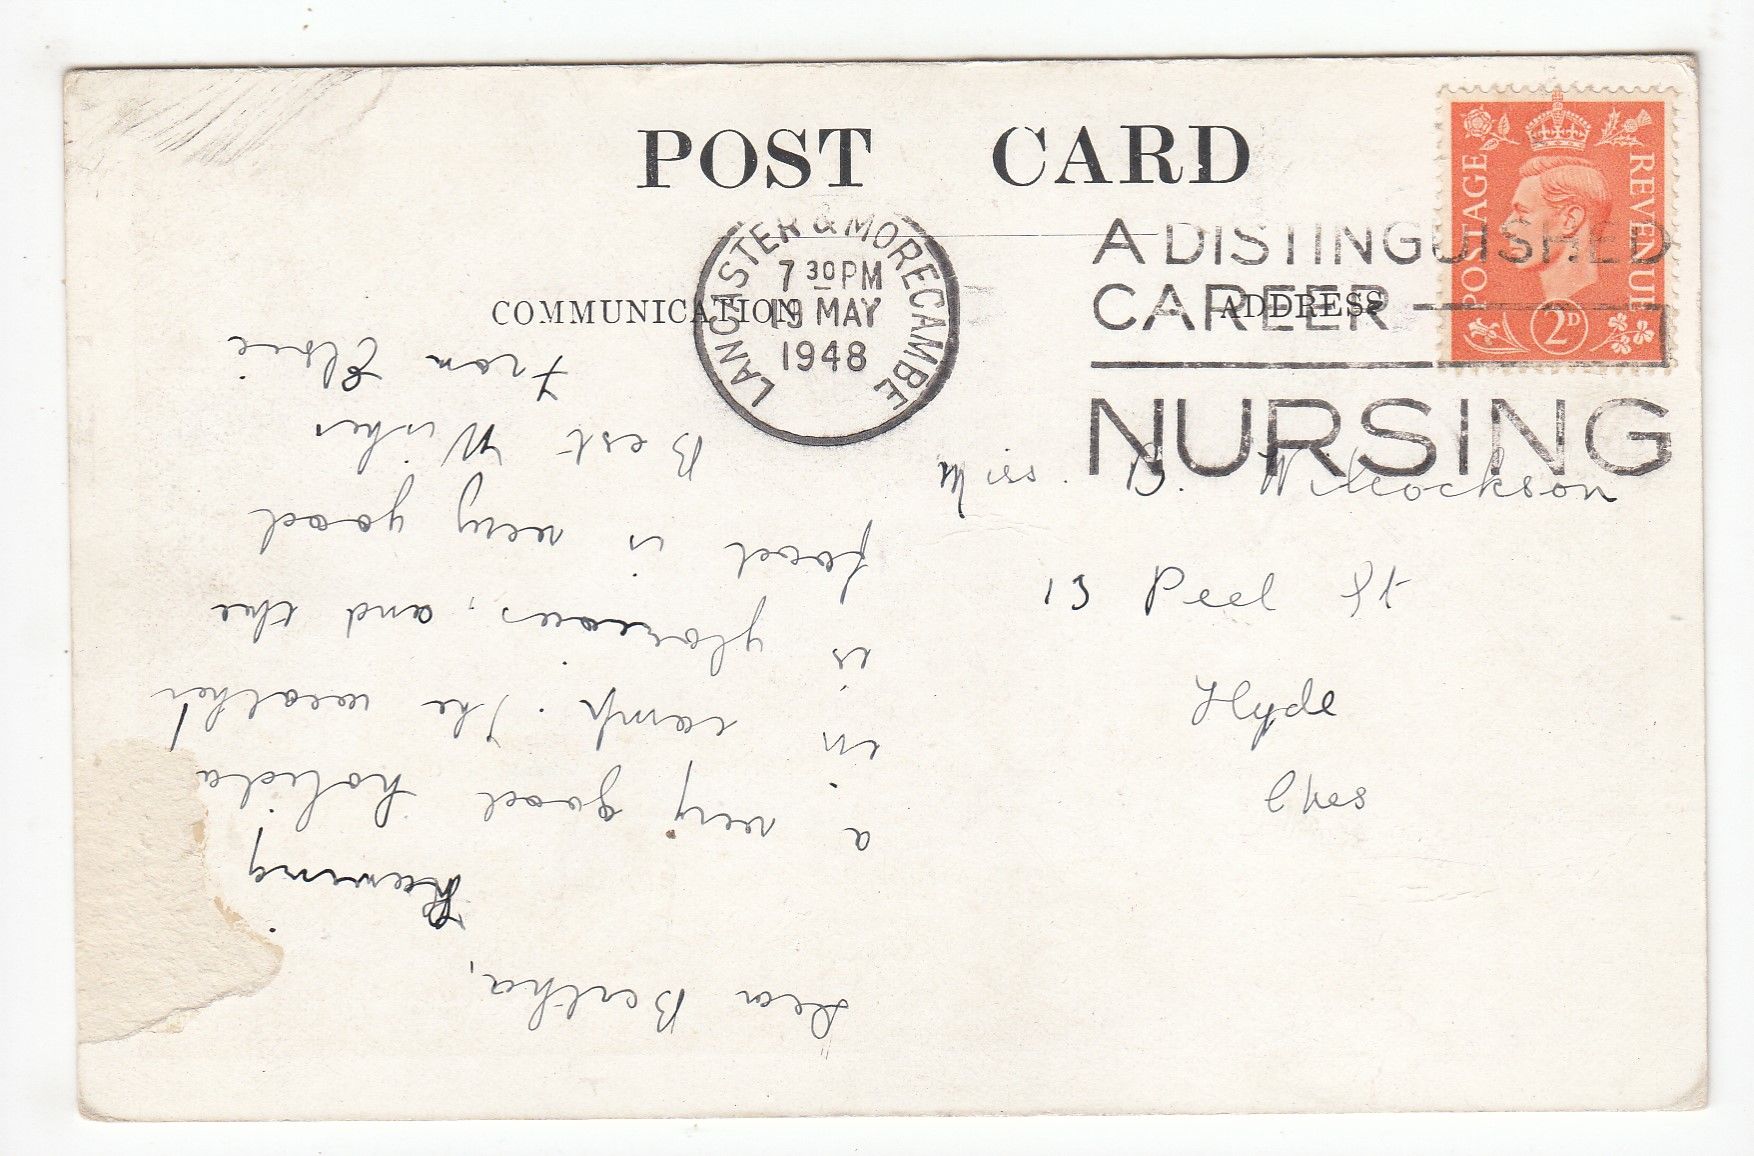 POST CARD
COMMUNICATION
ADDRESS
POSTAGE
REVENUE
2D
LANCASTER & MORECAMBE
7 30 PM
19 MAY
1948
A DISTINGUISHED
CAREER
NURSING
Miss. B. Wilcockson
13 Peel St
Hyde
Ches
Dear Bertha,
Having
a very good holida
in camp. The weather
is glorious, and the
food is very good
Best Wishes
From Elsie